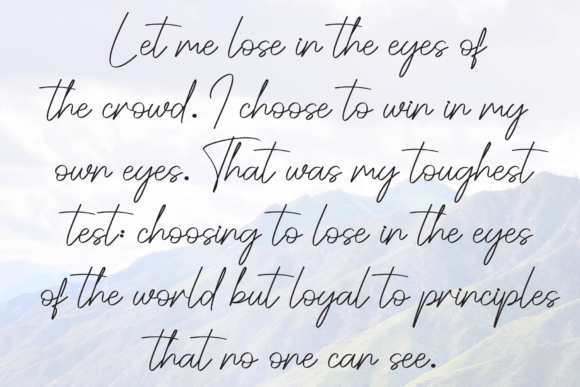 Let me lose in the eyes of
the crowd. I choose to win in my
own eyes. That was my toughest
test: choosing to lose in the eyes
of the world but loyal to principles
that no one can see.